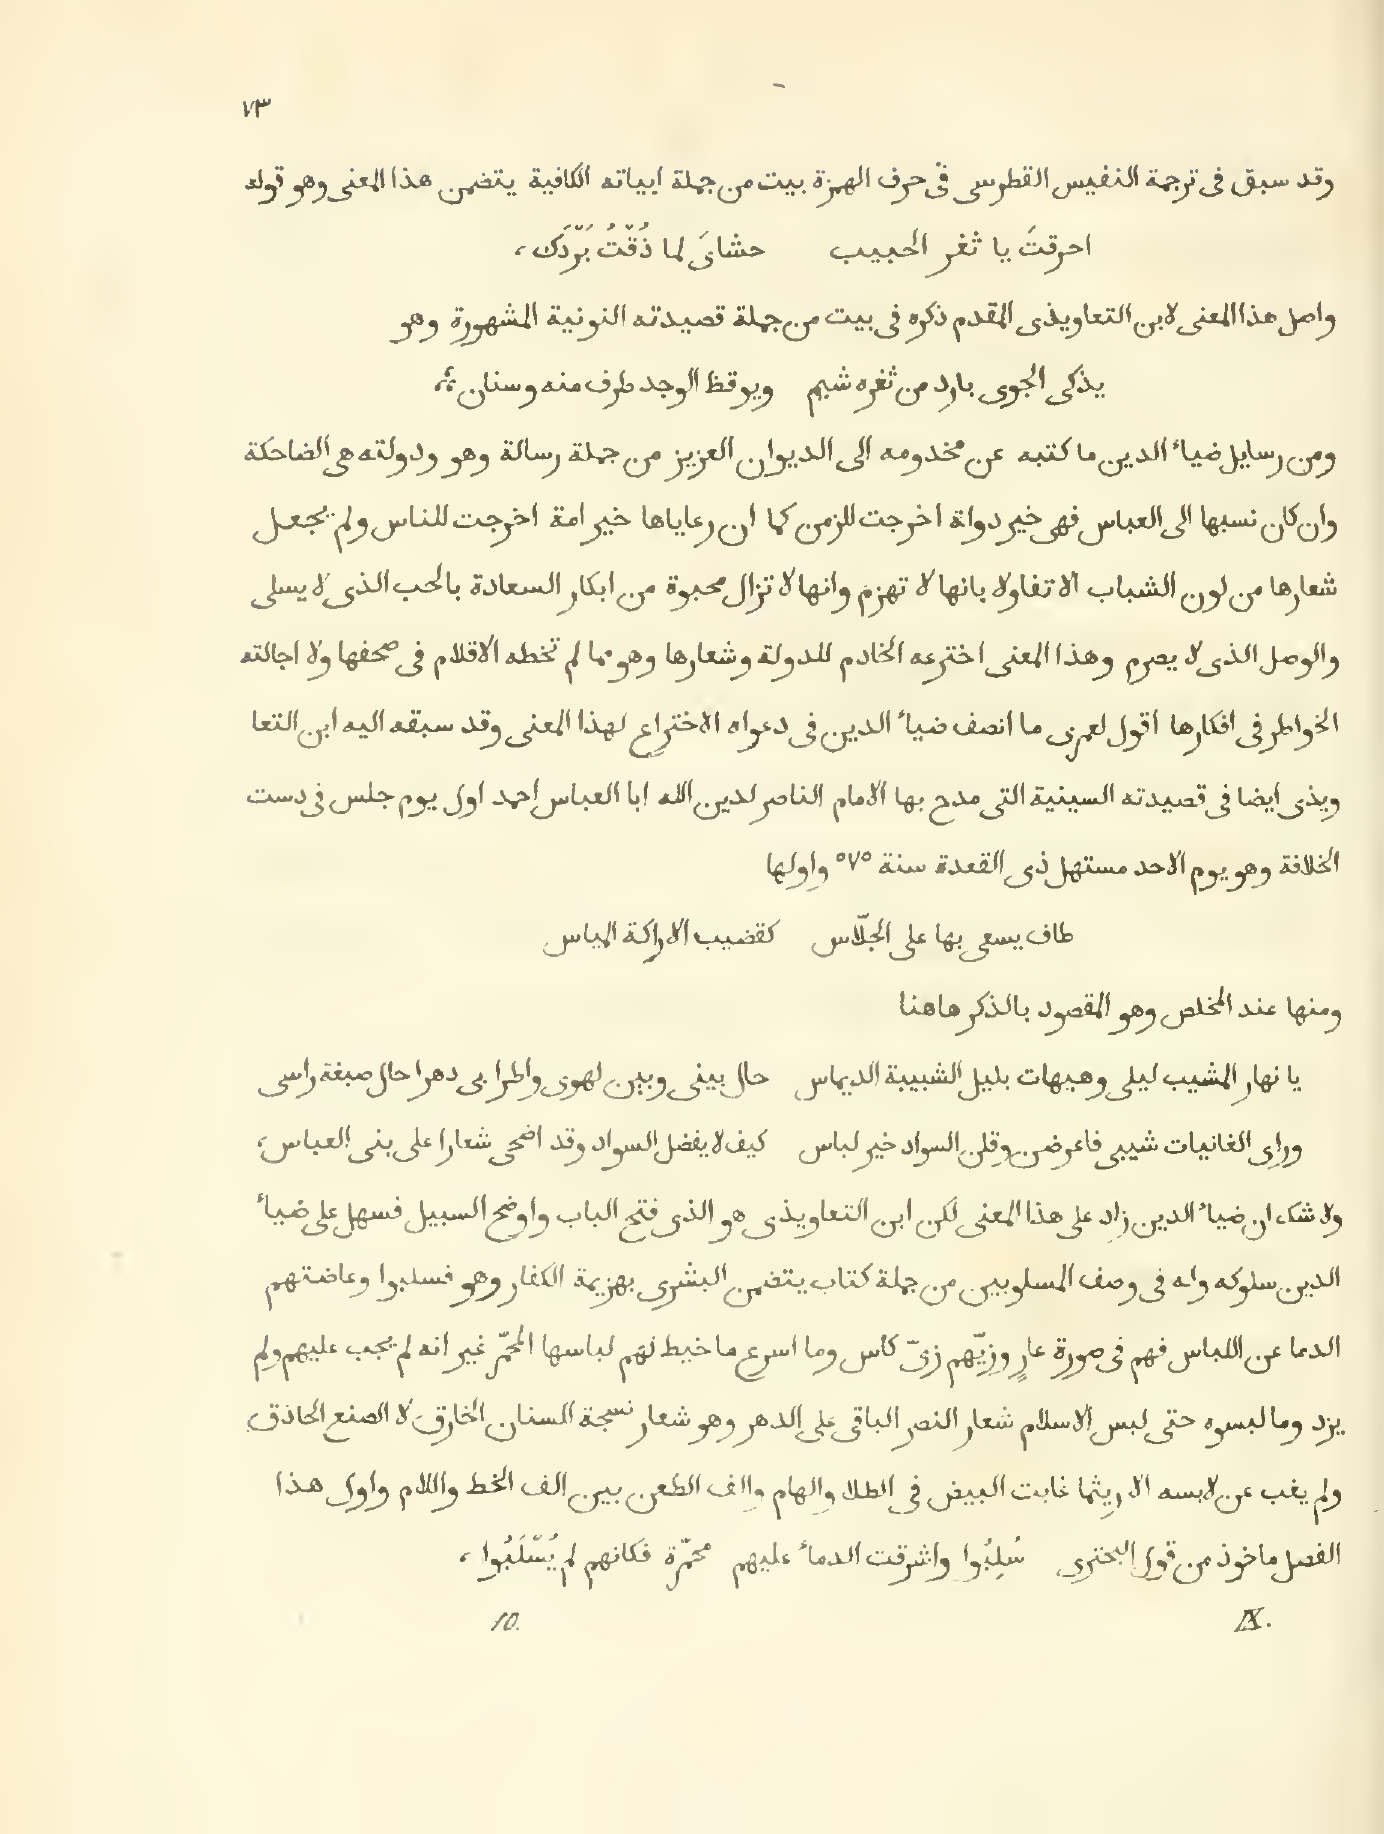 ٧٣
وقد سبق فى ترجمة النفيس القطرسى فى حرف الهمزة بيت من جملة ابياته الكافية يتضمن هذا المعنى وهو قوله
احرقتَ يا ثغر الحبيب حشاىَ لما ذُقْتُ بَرْدَك ،
واصل هذا المعنى لابن التعاويذى المقدم ذكره فى بيت من جملة قصيدته النونية المشهورة وهو
يذكى الجوى بارد من ثغره شبم ويوقظ الوجد طرف منه وسنان
ومن رسايل ضياء الدين ما كتبه عن مخدومه الى الديوان العزيز من جملة رسالة وهو ودولته هى الضاحكة
وان كان نسبها الى العباس فهى خير دولة اخرجت للزمن كما ان رعاياها خير امة اخرجت للناس ولم يجعل
شعارها من لون الشباب الا تفاولا بانها لا تهزم وانها لا تزال محبوة من ابكار السعادة بالحب الذى لا يسلى
والوصل الذى لا يصرم وهذا المعنى اخترعه الخادم للدولة وشعارها وهو مما لم تخطه الاقلام فى صحفها ولا اجالته
الخواطر فى افكارها اقول لعمرى ما انصف ضياء الدين فى دعواه الاختراع لهذا المعنى وقد سبقه اليه ابن التعا
ويذى ايضا فى قصيدته السينية التى مدح بها الامام الناصر لدين الله ابا العباس احمد اول يوم جلس فى دست
الخلافة وهو يوم الاحد مستهل ذى القعدة سنة ٥٧٥ واولها
طاف يسعى بها على الجلّاس كقضيب الاراكة المياس
ومنها عند المخلص وهو المقصود بالذكر هاهنا
يا نهار المشيب ليلى وهيهات بليل الشبيبة الديماس حال بينى وبين لهوى واطرابى دهرا حال صبغة راسى
وراى الغانيات شيبى فاعرضن وقلن السواد خير لباس كيف لا يفضل السواد وقد اضحى شعارا على بنى العباس ،
ولا شك ان ضياء الدين زاد على هذا المعنى لكن ابن التعاويذى هو الذى فتح الباب واوضح السبيل فسهل على ضياء
الدين سلوكه وله فى وصف المسلوبين من جملة كتاب يتضمن البشرى بهزيمة الكفار وهو فسلبوا وعاضتهم
الدما عن اللباس فهم فى صورة عارٍ وزيّهم زىّ كاس وما اسرع ما خيط لهم لباسها المحمّر غير انه لم يجب عليهم ولم
يزد وما لبسوه حتى لبس الاسلام شعار النصر الباقى على الدهر وهو شعار نسجة السنان الخارق لا الصنع الحاذق
ولم يغب عن لابسه الا ريثما غابت البيض فى الطلا والهام والف الطعن بين الف الخط واللام واول هذا
الفصل ماخوذ من قول البحترى سُلِبُوا واشرقت الدماء عليهم محمّرة فكانهم لم يُسْلَبُوا ،
IX. 10.